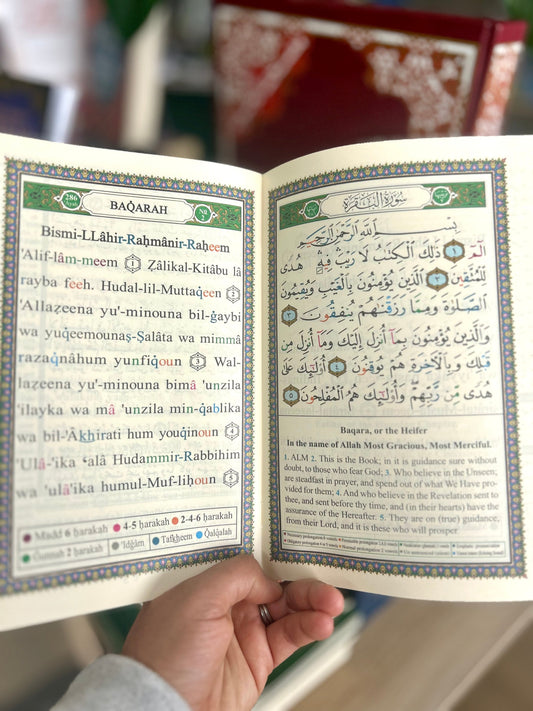 286
BAQARAH
Nü
2
Bismi-LLâhir-Raḥmânir-Raḥeem
'Alif-lâm-meem 1 Ẕâlikal-Kitâbu lâ
rayba feeh. Hudal-lil-Muttaq̇een 2
'Allaẕeena yu'-minouna bil-ġaybi
wa yuq̇eemounaṣ-Ṣalâta wa mimmâ
razaq̇nâhum yunfiq̇oun 3 Wal-
laẕeena yu'-minouna bimâ 'unzila
'ilayka wa mâ 'unzila min-q̇ablika
wa bil-'Âkhirati hum youq̇inoun 4
'Ulâ-'ika ʿalâ Hudammir-Rabbihim
wa 'ulâ'ika humul-Muf-liḥoun 5
Madd 6 ḥarakah 4-5 ḥarakah 2-4-6 ḥarakah
Ġunnah 2 ḥarakah 'Idġâm Tafkheem Q̇alq̇alah
سُورَةُ البَقَرَة
بِسْمِ اللَّهِ الرَّحْمَٰنِ الرَّحِيمِ
الٓمٓ ١ ذَٰلِكَ الْكِتَٰبُ لَا رَيْبَ فِيهِ هُدًى
لِّلْمُتَّقِينَ ٢ الَّذِينَ يُؤْمِنُونَ بِالْغَيْبِ وَيُقِيمُونَ
الصَّلَوٰةَ وَمِمَّا رَزَقْنَٰهُمْ يُنفِقُونَ ٣
وَالَّذِينَ يُؤْمِنُونَ بِمَآ أُنزِلَ إِلَيْكَ وَمَآ أُنزِلَ مِن
قَبْلِكَ وَبِالْآخِرَةِ هُمْ يُوقِنُونَ ٤ أُو۟لَٰٓئِكَ عَلَىٰ
هُدًى مِّن رَّبِّهِمْ وَأُو۟لَٰٓئِكَ هُمُ الْمُفْلِحُونَ ٥
Baqara, or the Heifer
In the name of Allah Most Gracious, Most Merciful.
1. ALM 2. This is the Book; in it is guidance sure without
doubt, to those who fear God; 3. Who believe in the Unseen;
are steadfast in prayer, and spend out of what We have Pro
vided for them; 4. And who believe in the Revelation sent to
thee, and sent before thy time, and (in their hearts) have the
assurance of the Hereafter. 5. They are on (true) guidance,
from their Lord, and it is these who will prosper.